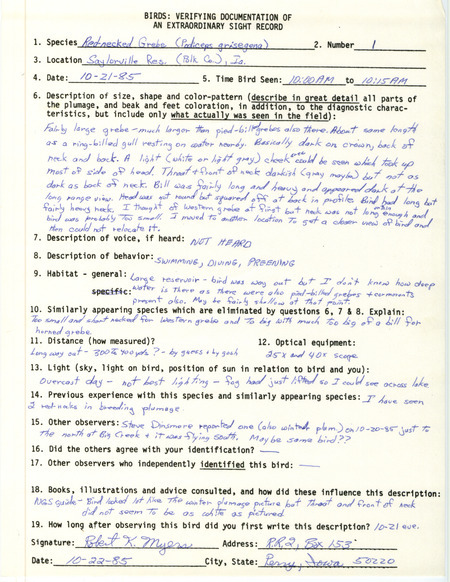 BIRDS: VERIFYING DOCUMENTATION OF
AN EXTRAORDINARY SIGHT RECORD
1. Species Red-necked Grebe (Podiceps grisegena) 2. Number 1
3. Location Saylorville Res. (Polk Co.), Ia.
4. Date: 10-21-85 5. Time Bird Seen: 10:00 AM to 10:15 AM
6. Description of size, shape and color-pattern (describe in great detail all parts of
the plumage, and beak and feet coloration, in addition, to the diagnostic charac-
teristics, but include only what actually was seen in the field):
Fairly large grebe - much larger than pied-bill grebes also there. About same length
as a ring-billed gull resting on water nearby. Basically dark on crown, back of
neck and back. A light (white or light grey) cheek area could be seen which took up
most of side of head. Throat & front of neck darkish (gray maybe) but not as
dark as back of neck. Bill was fairly long and heavy and appeared dark at the
long range view. Head was not round but squared off at back in profile. Bird had long but
fairly heavy neck. I thought of Western grebe at first but neck was not long enough and
bird was probably too small. I moved to another location to get a closer view of bird and
then could not relocate it.
7. Description of voice, if heard: NOT HEARD
8. Description of behavior: SWIMMING, DIVING, PREENING
9. Habitat - general: Large reservoir - bird was way out but I don't know how deep
specific: water is there as there were also pied-billed grebes & cormorants
present also. May be fairly shallow at that point.
10. Similarly appearing species which are eliminated by questions 6, 7 & 8. Explain:
Too small and short necked for Western grebe and to big with much too big of a bill for
horned grebe.
11. Distance (how measured)? 12. Optical equipment:
Long way out - 300 to 400 yds? - by guess & by gosh 25x and 40x scope
13. Light (sky, light on bird, position of sun in relation to bird and you):
Overcast day - not best lighting - fog had just lifted so I could see across lake
14. Previous experience with this species and similarly appearing species: I have seen
2 rednecks in breeding plumage
15. Other observers: Steve Dinsmore reported one (also winter plum.) on 10-20-85 just to
the north at Big Creek & it was flying south. Maybe same bird??
16. Did the others agree with your identification? —
17. Other observers who independently identified this bird: —
18. Books, illustrations and advice consulted, and how did these influence this description:
NGS guide - Bird looked lot like the winter plumage picture but throat and front of neck
did not seem to be as white as pictured
19. How long after observing this bird did you first write this description? 10-21 eve.
Signature: Robert K. Myers Address: R.R.2, Box 153
Date: 10-22-85 City, State: Perry, Iowa 50220